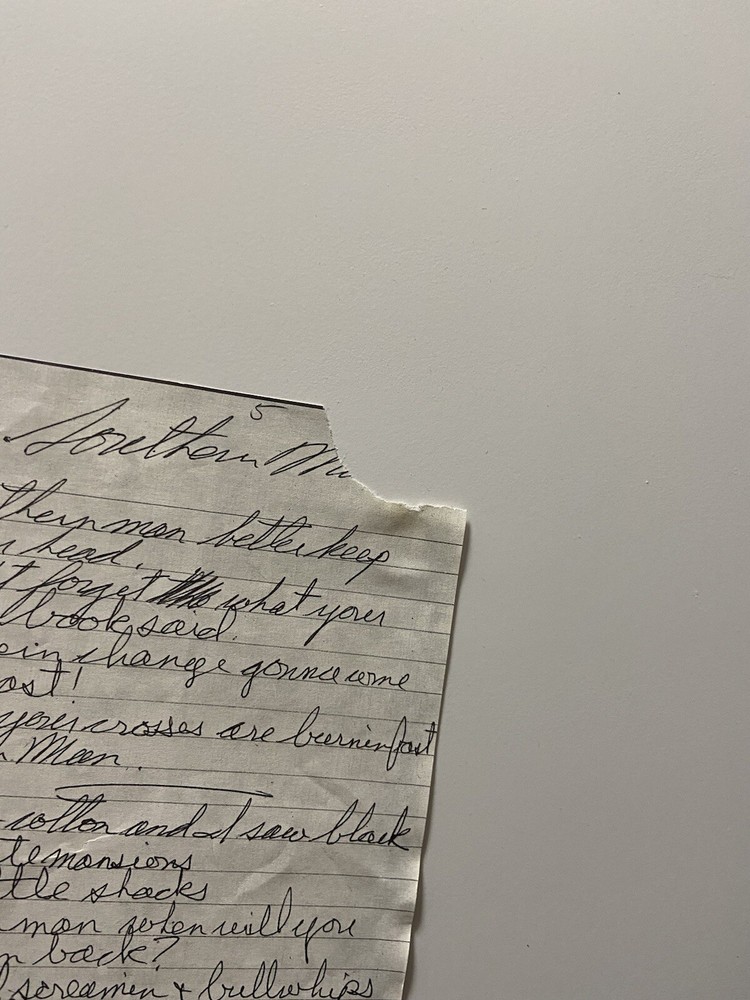 5
Southern M
thern man better keep
r head.
t forget what your
book said.
change gonna come
ast!
your crosses are burnin fast
n Man.
cotton and I saw black
te mansions
ttle shacks
man when will you
n back?
screamin & bullwhips